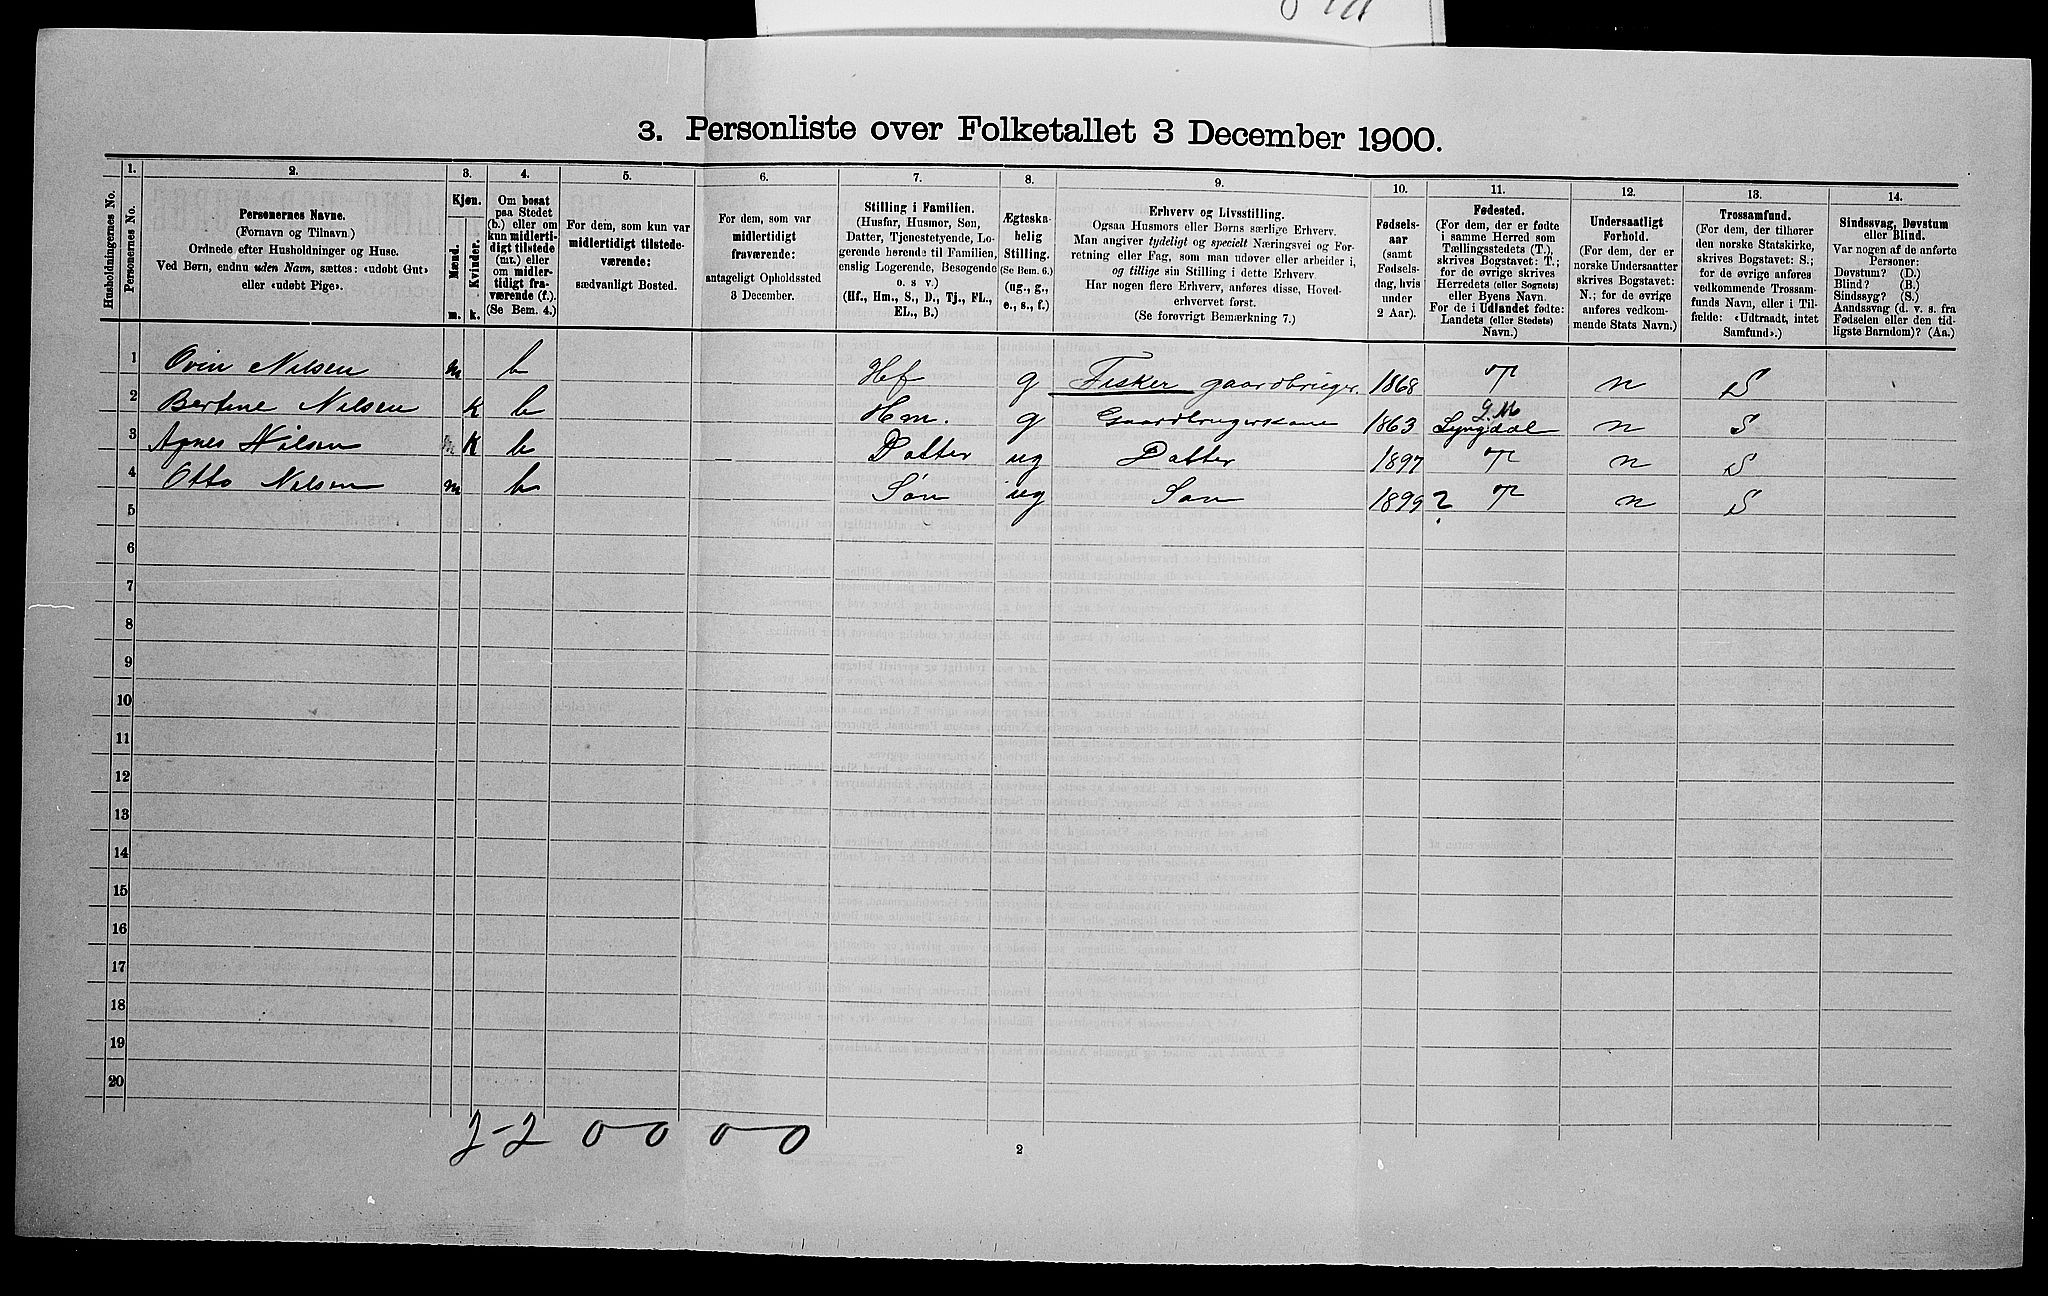 3. Personliste over Folketallet 3 December 1900.
Husholdningernes No.
1.
Personernes No.
2.
Personernes Navne.
(Fornavn og Tilnavn)
Ordnede efter Husholdninger og Huse.
Ved Børn, endnu uden Navn, sættes: «udøbt Gut»
eller «udøbt Pige».
3.
Kjøn.
Mænd.
Kvinder.
m.
k.
4.
Om bosat
paa Stedet
(b.) eller om
kun midlerti-
digt tilstede
(mt.) eller
om midler-
tidigt fra-
værende (f.).
(Se Bem. 4.)
5.
For dem, som kun var
midlertidigt tilstede-
værende:
sædvanligt Bosted.
6.
For dem, som var
midlertidigt
fraværende:
antageligt Opholdssted
3 December.
7.
Stilling i Familien.
(Husfar, Husmor, Søn,
Datter, Tjenestetyende, Lo-
gerende hørende til Familien,
enslig Logerende, Besøgende
o. s v.)
(Hf., Hm., S., D., Tj., FL.,
EL., B.)
8.
Ægteska-
belig
Stilling.
(Se Bem. 6.)
(ug., g.,
e., s., f.)
9.
Erhverv og Livsstilling.
Ogsaa Husmors eller Børns særlige Erhverv.
Man angiver tydeligt og specielt Næringsvei og For-
retning eller Fag, som man udøver eller arbeider i,
og tillige sin Stilling i dette Erhverv.
Har nogen flere Erhverv, anføres disse, Hoved-
erhvervet først.
(Se forøvrigt Bemærkning 7.)
10.
Fødsels-
aar
(samt
Fødsels-
dag, hvis
under
2 Aar).
11.
Fødested.
(For dem, der er fødte
i samme Herred som
Tællingsstedets (T.),
skrives Bogstavet: T.;
for de øvrige skrives
Herredets (eller Sognets)
eller Byens Navn.
For de i Udlandet fødte:
Landets (eller Stedets)
Navn.)
12.
Undersaatligt
Forhold.
(For dem, der er
norske Undersaatter
skrives Bogstavet:
N.; for de øvrige
anføres vedkom-
mende Stats Navn.)
13.
Trossamfund.
(For dem, der tilhører
den norske Statskirke,
skrives Bogstavet: S.;
for de øvrige anføres
vedkommende Trossam-
funds Navn, eller i Til-
fælde: «Udtraadt, intet
Samfund».)
14.
Sindssvag, Døvstum
eller Blind.
Var nogen af de anførte
Personer:
Døvstum? (D.)
Blind? (B.)
Sindssyg? (S.)
Aandssvag (d. v. s. fra
Fødselen eller den tid-
ligste Barndom)? (Aa.)
1 Ovin Nilsen m b Hf g Fisker gaardbruger. 1868 T n S
2 Bertine Nilsen K b Hm. g Gaardbrugerkone 1863 G.M Lyngdal n S
3 Agnes Nilsen m K b Datter ug Datter 1897 T n S
4 Otto Nilsen m b Søn ug Søn 1899 ? T n S
5
6
7
8
9
10
11
12
13
14
15
16
17
18
19
20
2-2 0 0 0 0
2